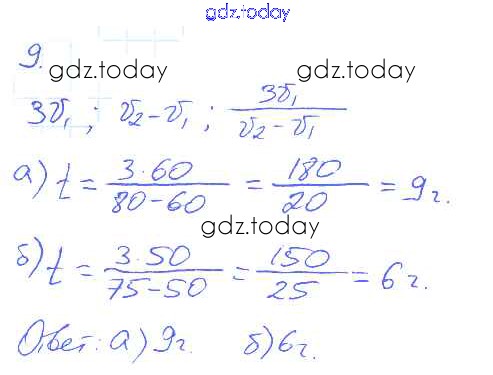 gdz.today
9.
gdz.today gdz.today
3v₁; v₂-v₁; 3v₁/(v₂-v₁)
а) t = 3·60/(80-60) = 180/20 = 9г.
gdz.today
б) t = 3·50/(75-50) = 150/25 = 6г.
Ответ: а) 9г. б) 6г.
gdz.today